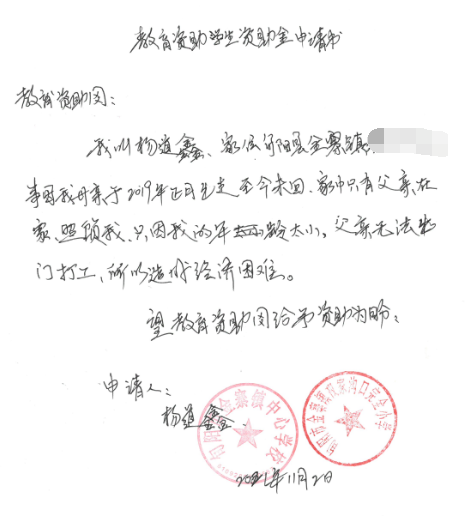 教育资助学生资助金申请书
教育资助团:
我叫杨道鑫、家住旬阳县金寨镇
事因我母亲于2019年正月出走至今未回、家中只有父亲在
家、照顾我、只因我的年龄太小,父亲无法出
门打工,所以造成经济困难。
望教育资助团给予资助为盼。
申请人:
杨道鑫
旬阳 金寨镇中心学校
2021年11月2日